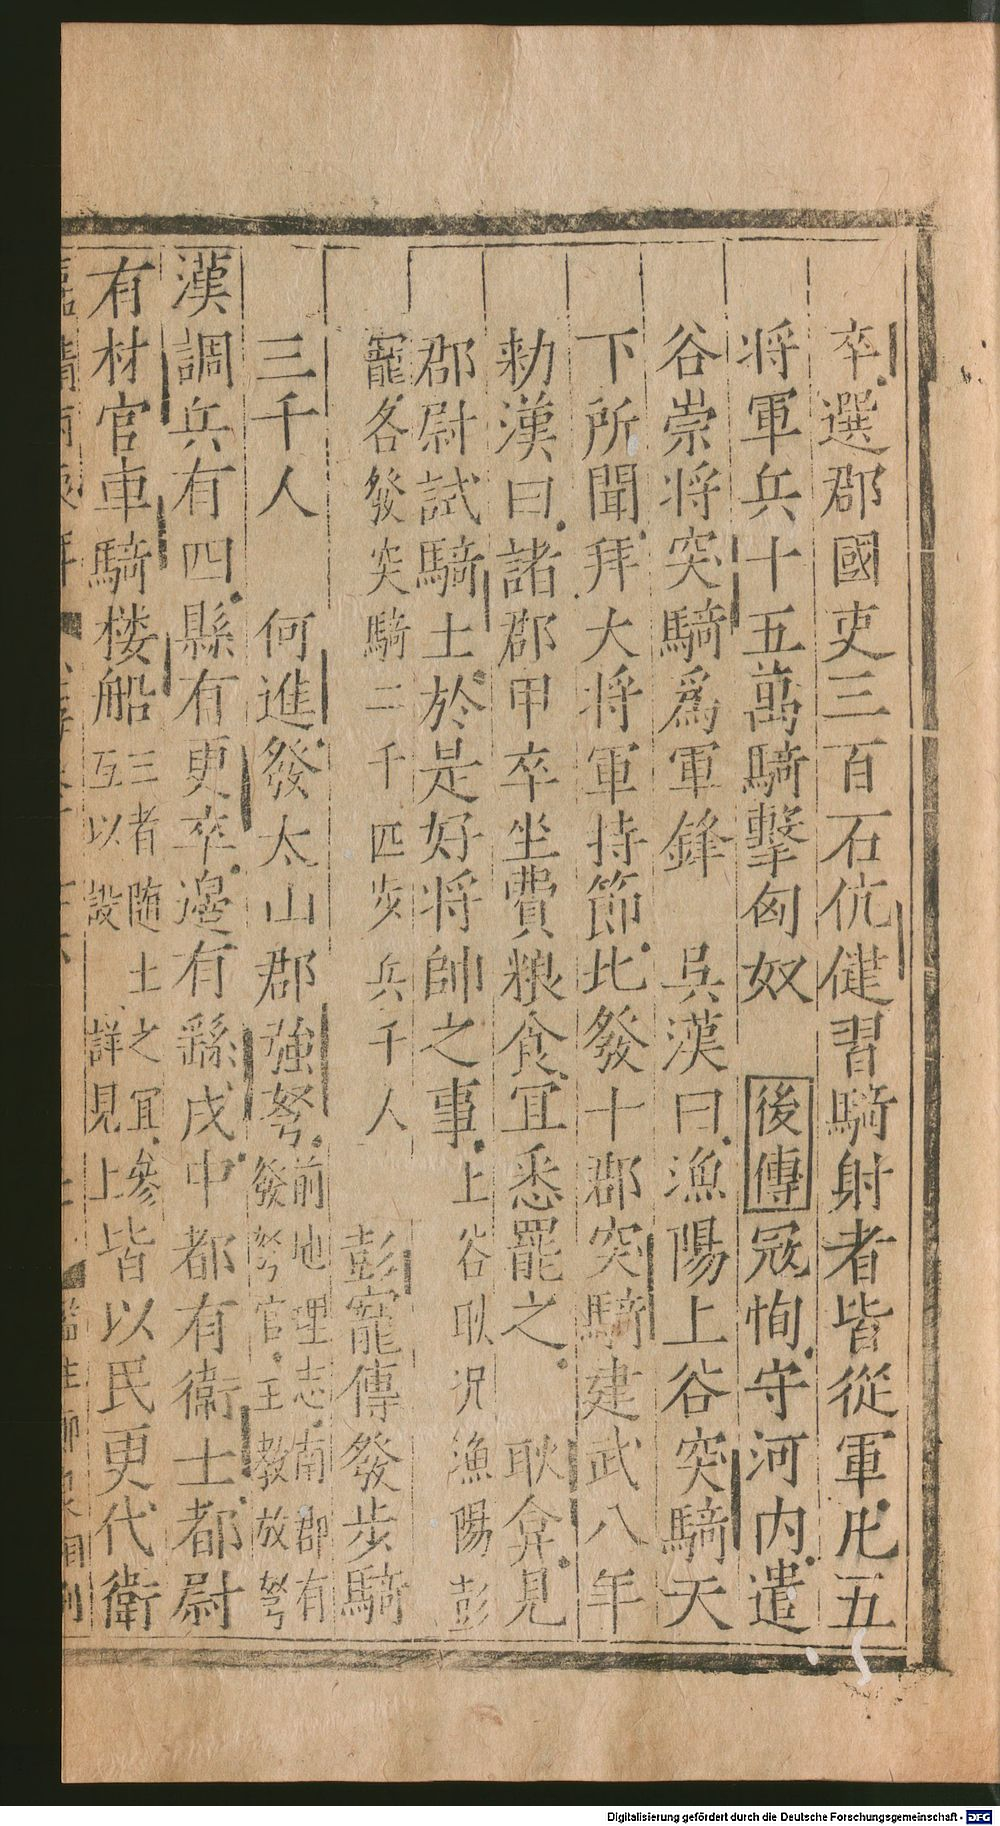 卒選郡國吏三百石伉健習騎射者皆從軍凡五
将軍兵十五萬騎擊匈奴　後傳冦恂守河内遣
谷崇将突騎爲軍鋒　吳漢曰漁陽上谷突騎天
下所聞拜大将軍持節北發十郡突騎建武八年
勑漢曰諸郡甲卒坐費粮食宜悉罷之　耿弇見
郡尉試騎士於是好将帥之事上谷耿况漁陽彭
寵各發突騎二千匹步兵千人　彭寵傳發步騎
三千人　何進發太山郡強弩前地理志南郡有
發弩官王教放弩
漢調兵有四縣有更卒邉有繇戍中都有衞士都尉
有材官車騎楼船三者随土之宜參
互以設詳見上皆以民更代衛
Digitalisierung gefördert durch die Deutsche Forschungsgemeinschaft - DFG